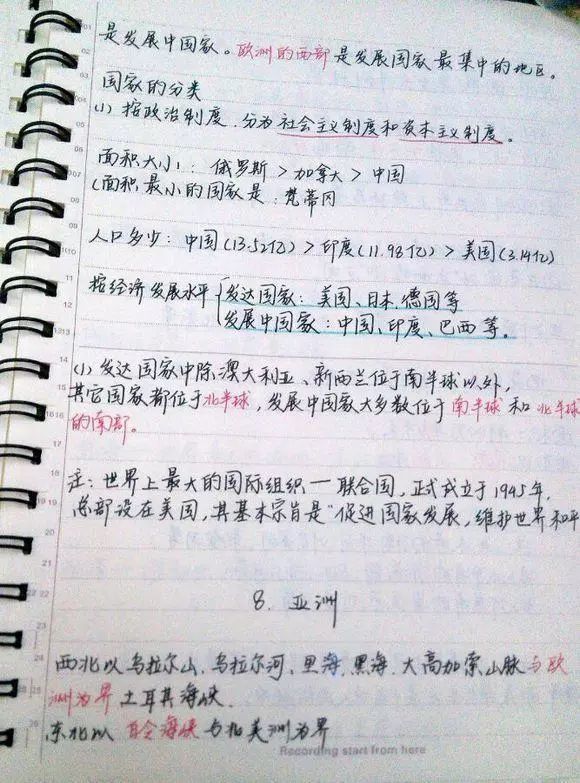 是发展中国家。欧洲的西部是发展国家最集中的地区。
国家的分类
(1) 按政治制度.分为社会主义制度和资本主义制度。
面积大小: 俄罗斯 > 加拿大 > 中国
(面积.最小的国家是:梵蒂冈
人口多少: 中国(13.52亿) > 印度(11.98亿) > 美国(3.14亿)
按经济发展水平 { 发达国家: 美国、日本.德国等
发展中国家: 中国、印度、巴西等。
(1) 发达国家中除.澳大利亚、新西兰位于南半球以外,
其它国家都位于北半球,发展中国家大多数位于南半球和北半球
的南部。
注: 世界上最大的国际组织一联合国,正式成立于1945年,
总部设在美国,其基本宗旨是"促进国家发展,维护世界和平
8. 亚洲
西北以乌拉尔山、乌拉尔河、里海、黑海、大高加索山脉与欧
洲为界 土耳其海峡.
东北以 白令海峡与北美洲为界
Recording start from here